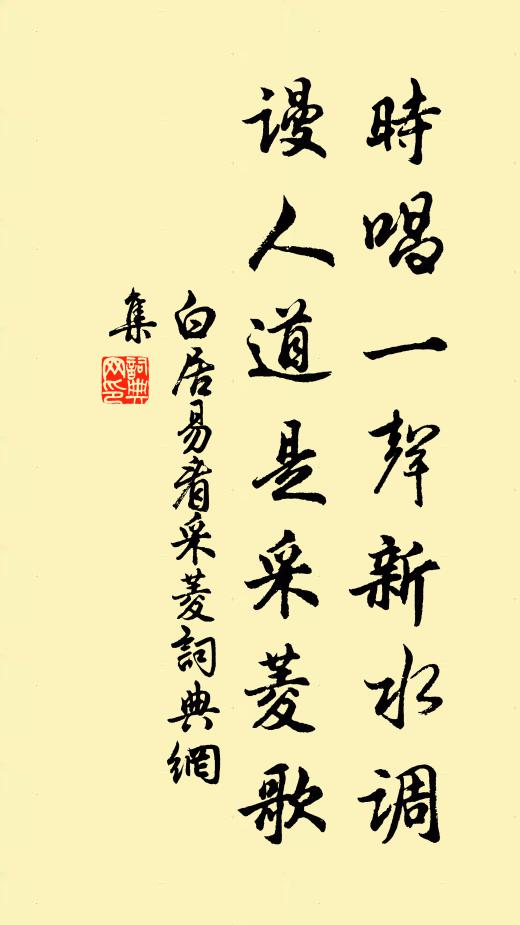 時唱一聲新水调
謾人道是采菱歌
白居易看采菱詞典網
集
詞典网印